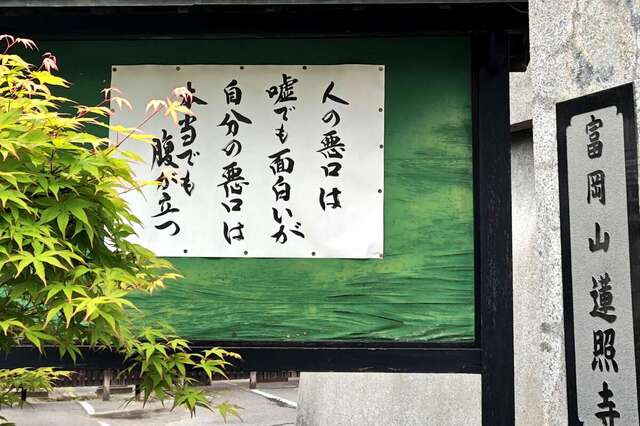 人の悪口は
嘘でも面白いが
自分の悪口は
本当でも
腹が立つ
富岡山蓮照寺